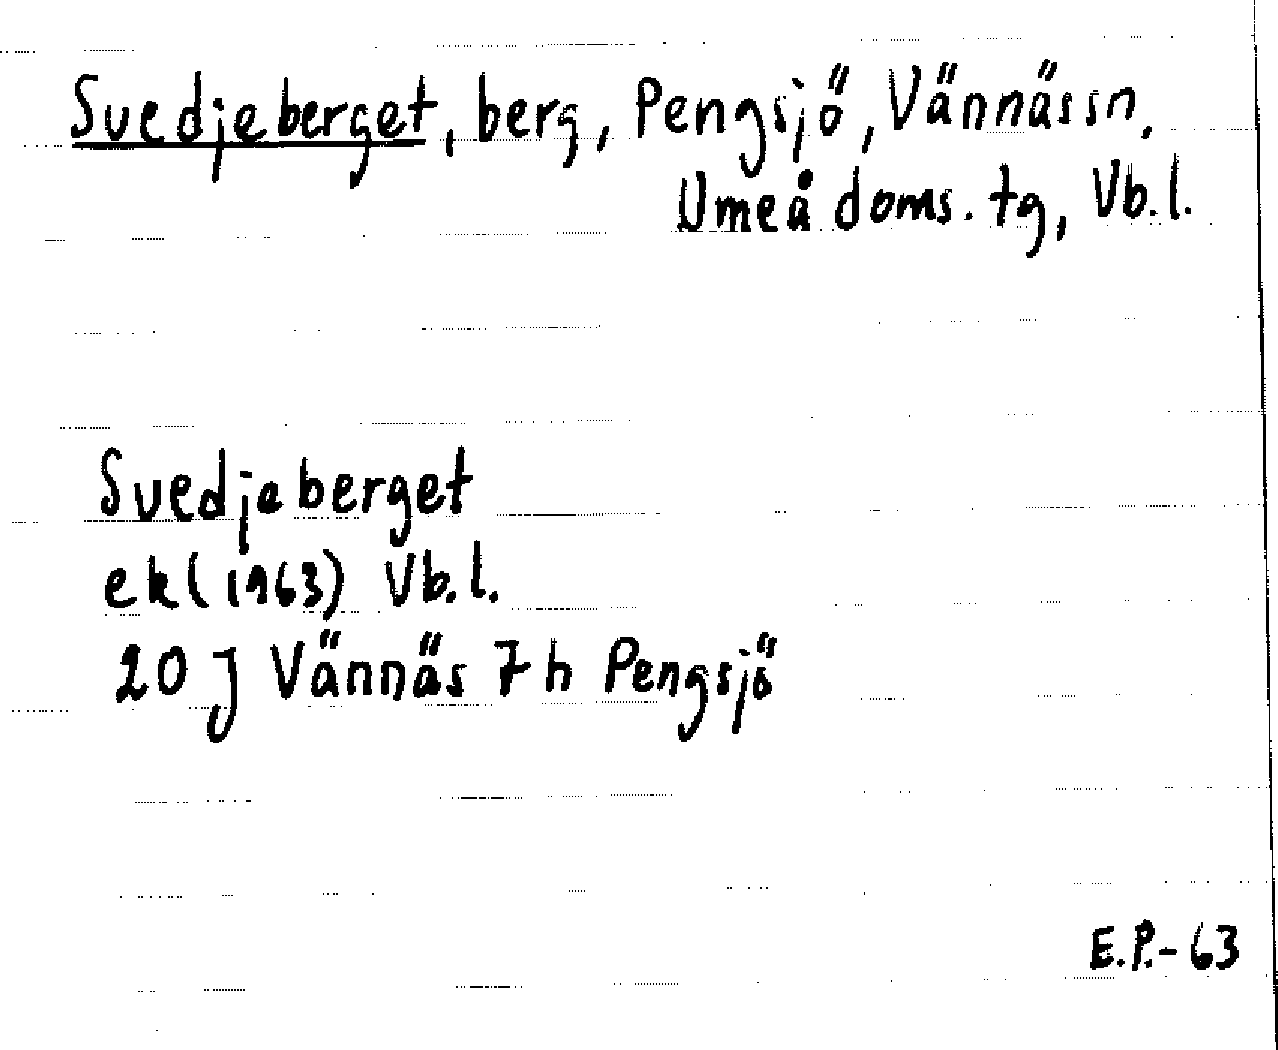 Svedjeberget, berg, Pengsjö, Vännässn,
Umeå doms. tg, Vb.l.
Svedjeberget
ek (1963) Vb.l.
20 J Vännäs 7 h Pengsjö
E.P.-63